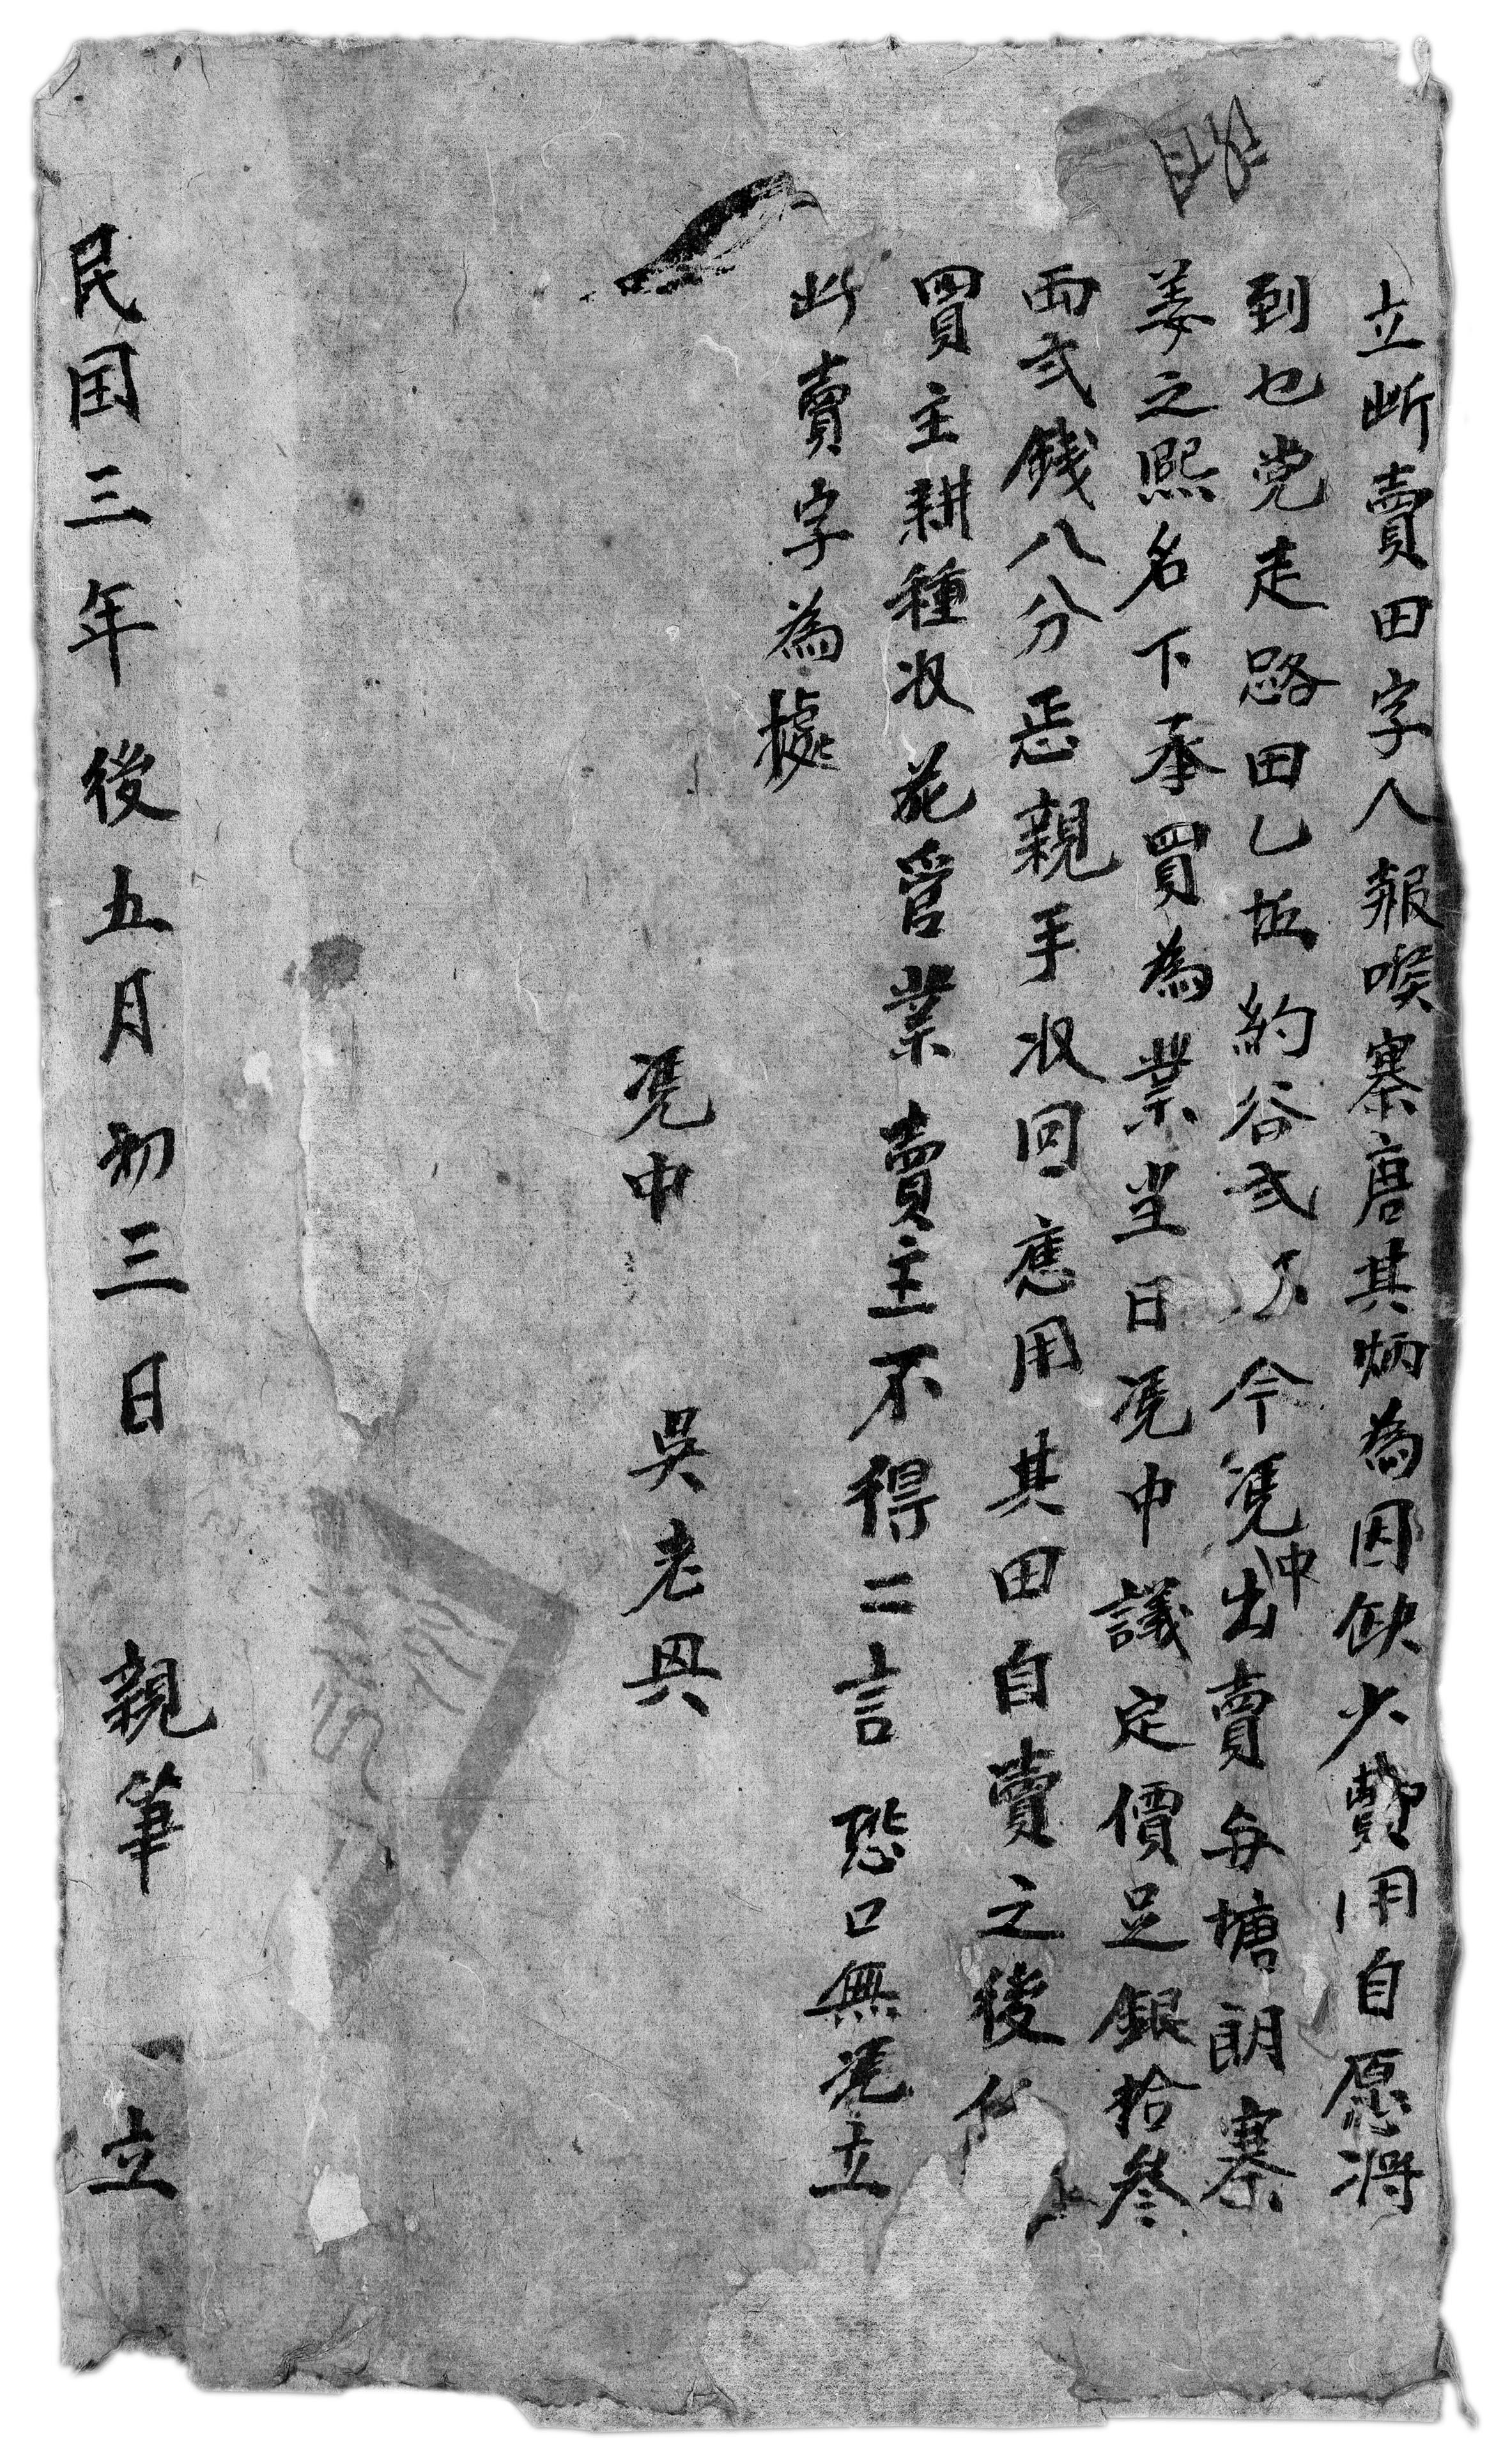 立断賣田字人報喚寨唐其炳為因缺少費用自愿将
到乜党走路田乚坵約谷弍 今凴中出賣與塘朗寨
姜之熙名下承買為業坐日凴中議定價足銀拾叁
両弍錢八分恶親手收回應用其田自賣之後
買主耕種收花管業賣主不得二言恐口無凴立
此賣字為據
凴中 吳老興
民国三年後五月初三日 親筆 立